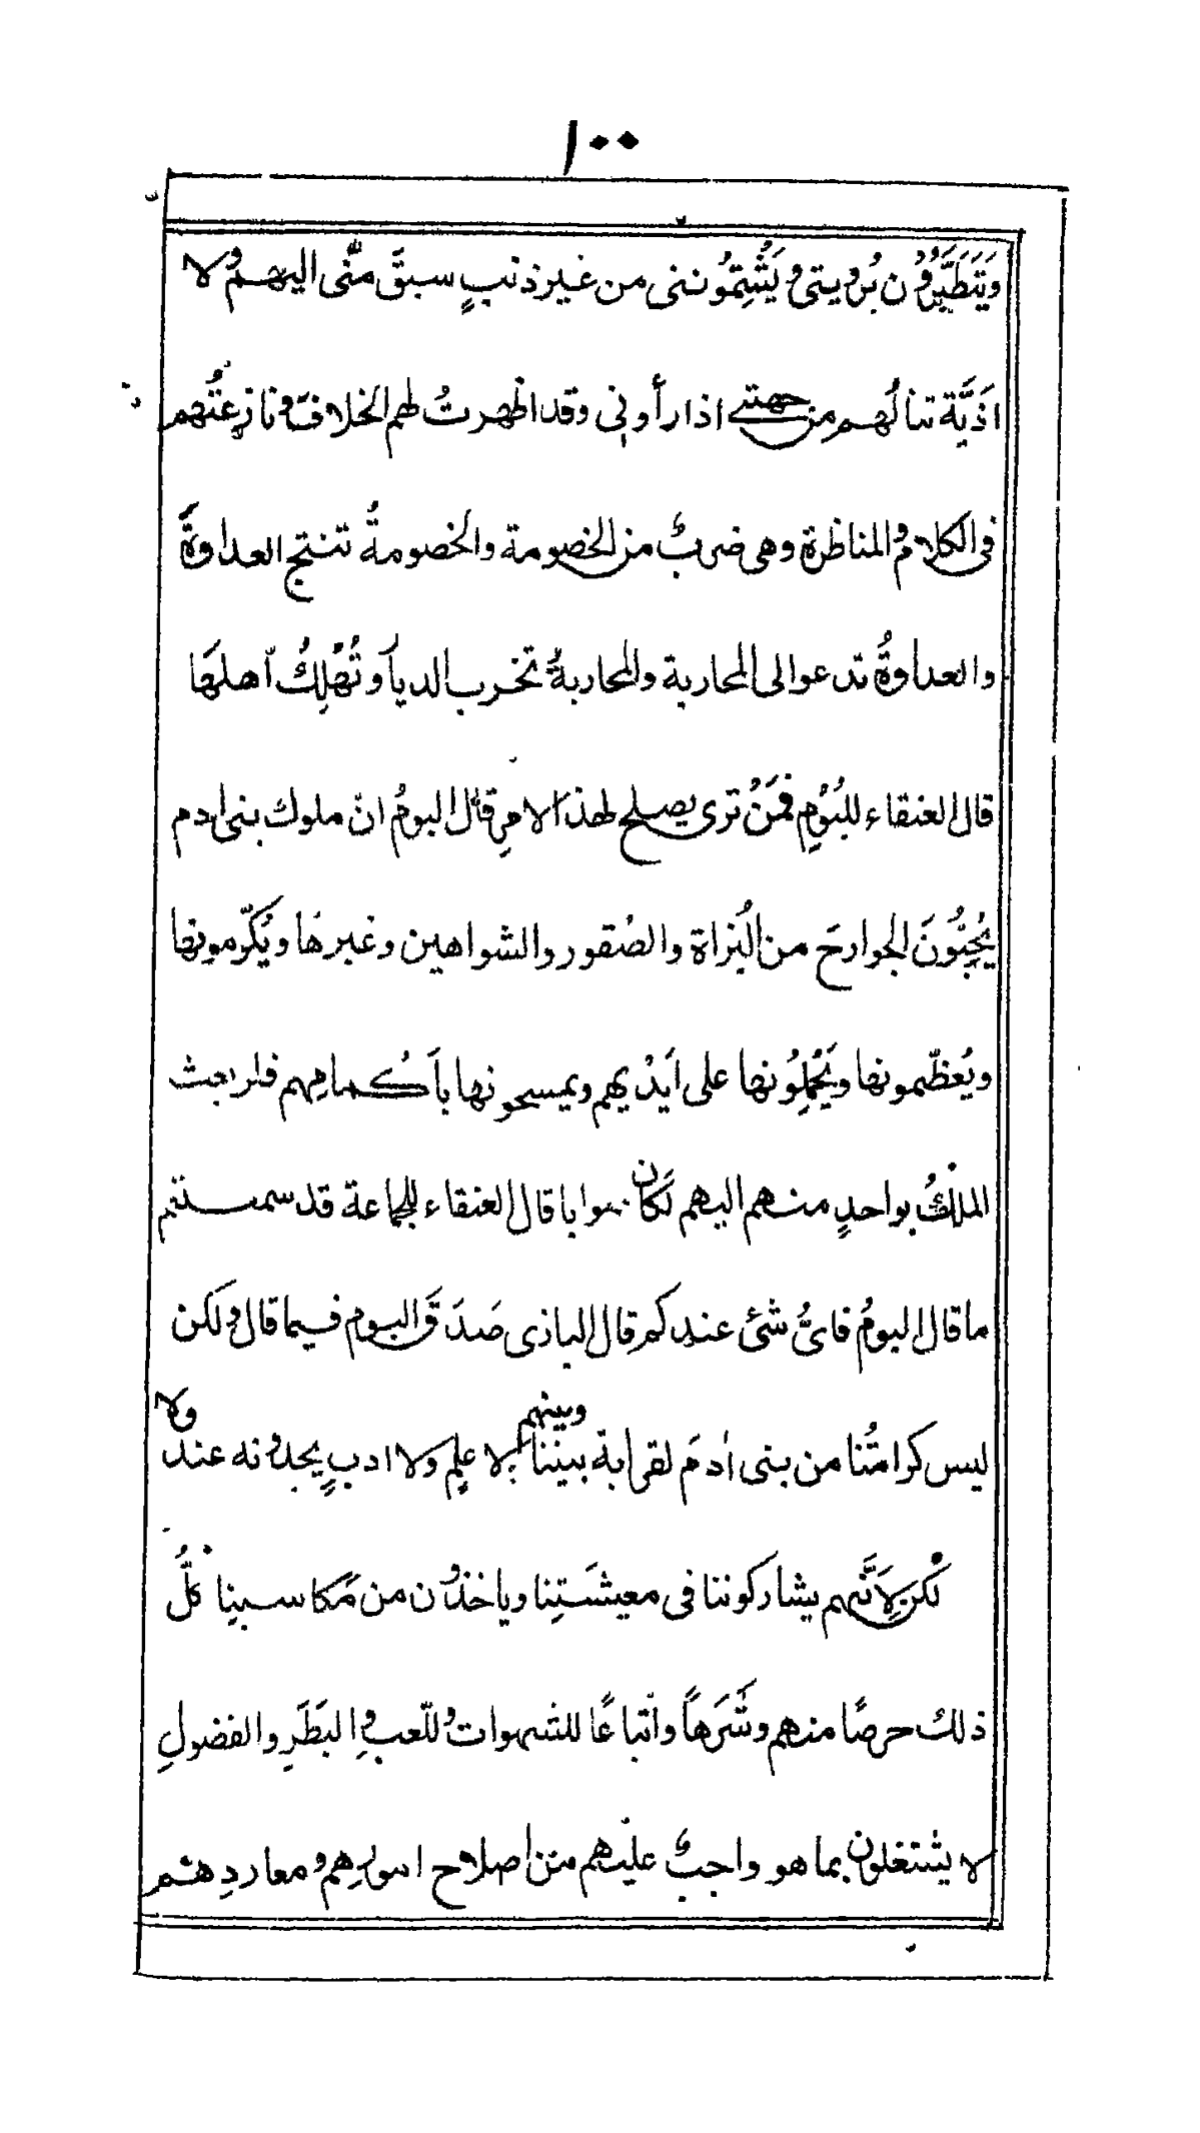 ١٠٠
وَيَتَطَيَّرُوُن بُرويتى ويَشْتِمُوننى من غير ذنبٍ سبقَ منّى اليهم ولا
اَذيَّة تنالُهم من جهتے اذا رأونى وقد اظهرتُ لهم الخلافَ ونازعتُهم
فى الكلام والمناظرة وهى ضربٌ من الخصومة والخصومةُ تنتج العداوةَ
والعداوةُ تدعوا الى المحاربة والمحاربةُ تخرب الديار وتُهْلِكُ اَهلهَا
قال العنقاء للبُوْمِ فمَنْ ترى يصلح لهذا الامرِ قال البومُ انّ ملوك بنى اٰدم
يُحِبُّونَ الجوارحَ من البُزاة والصُقور والشواهين وغيرهَا ويُكَرّمونها
ويُعَظّمونها ويَحْمِلُونها على اَيْديهم ويمسحونها باَكُمامِهم فلو بعث
الملكُ بواحدٍ منهم اليهم لكَان صوابا قال العنقاء للجماعة قد سمعتم
ما قال البومُ فاىُّ شئ عندكم قال البازى صَدَقَ البوم فيما قال ولكن
ليس كرامتُنا من بنى اٰدمَ لقرابة بيننا وبينهم ولا علمٍ ولا ادبٍ يجدونه عندنا
لكن لِاَنَّهم يشاركوننا فى معيشَتِنا وياخذون من مَكاسبنِا كلُّ
ذلك حرصًا منهم وشَرَهاً واتّباعًا للشهوات وللّعب والبَطَرِ والفضولِ
لا يشتغلون بما هو واجبٌ عليْهم من اصلاح امورِهم ومعادِهم